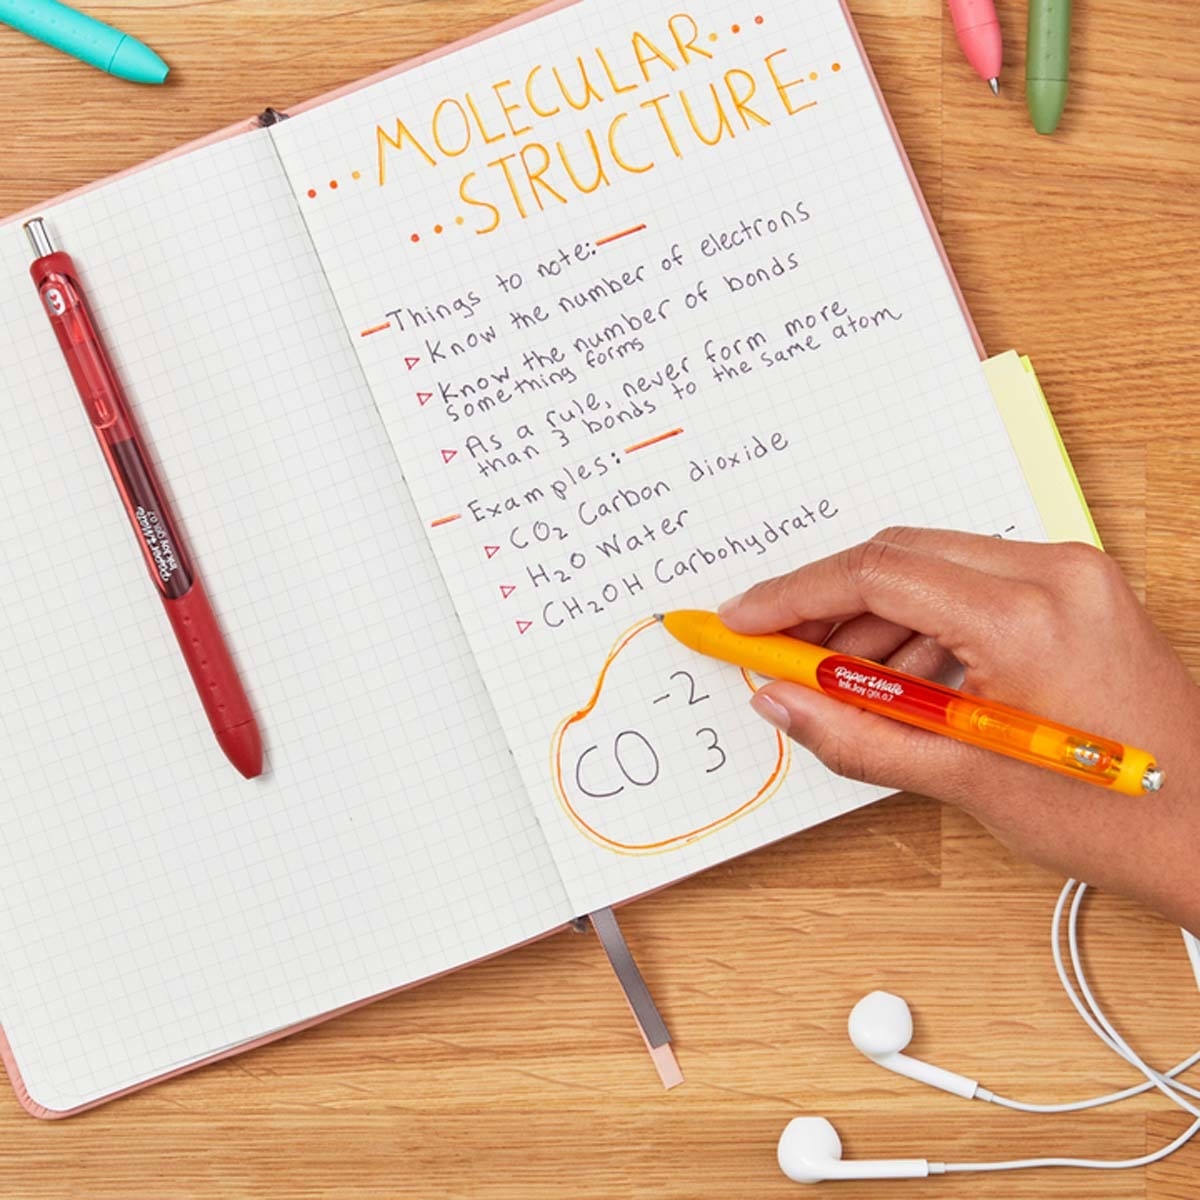 ...MOLECULAR...
...STRUCTURE...
Things to note:
Know the number of electrons
Know the number of bonds
something forms
As a rule, never form more
than 3 bonds to the same atom
Examples:
CO₂ Carbon dioxide
H₂O Water
CH₂OH Carbohydrate
-2
CO 3
Paper Mate
InkJoy gel 0.7
Paper Mate
InkJoy gel 0.7